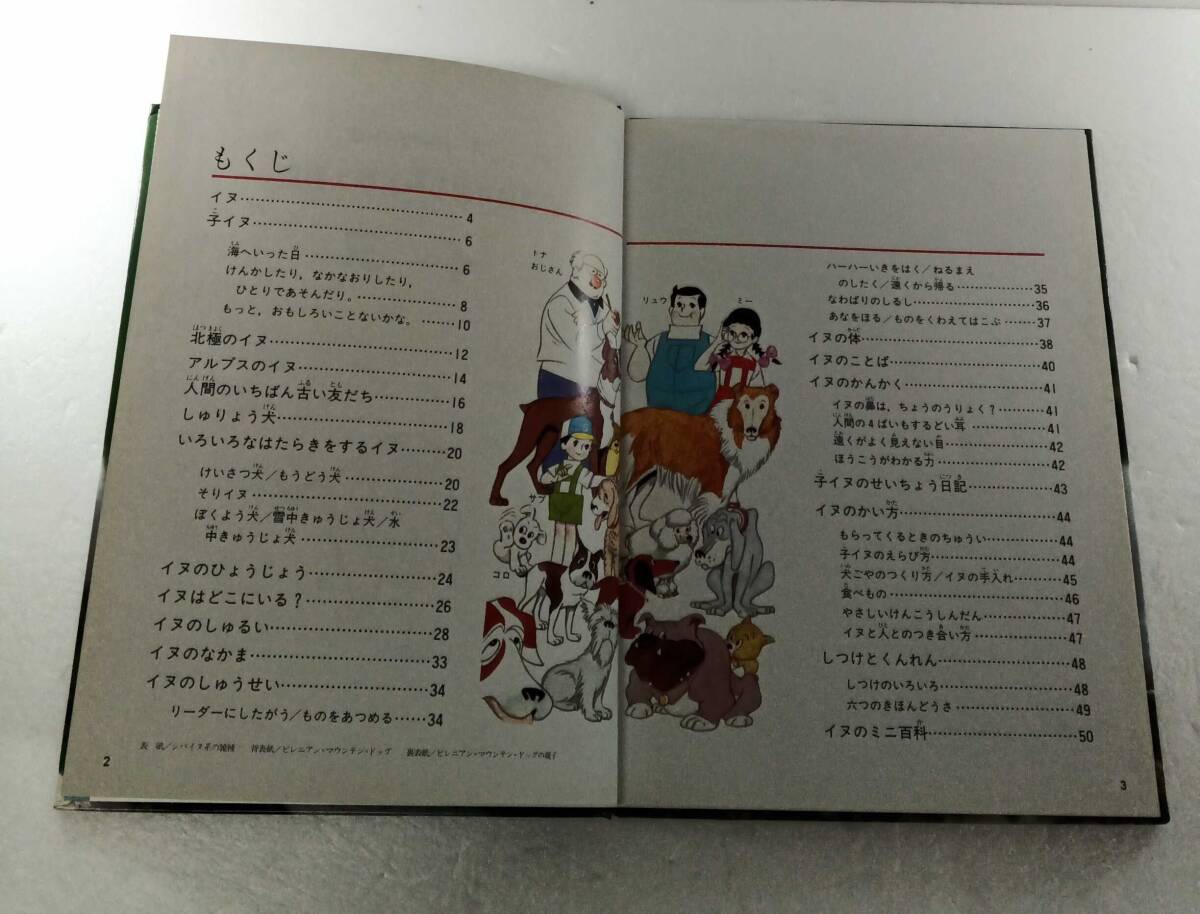 もくじ
イヌ……4
子イヌ……6
海へいった日……6
けんかしたり，なかなおりしたり，
ひとりであそんだり。……8
もっと，おもしろいことないかな。……10
北極のイヌ……12
アルプスのイヌ……14
人間のいちばん古い友だち……16
しゅりょう犬……18
いろいろなはたらきをするイヌ……20
けいさつ犬／もうどう犬……20
そりイヌ……22
ぼくよう犬／雪中きゅうじょ犬／水
中きゅうじょ犬……23
イヌのひょうじょう……24
イヌはどこにいる？……26
イヌのしゅるい……28
イヌのなかま……33
イヌのしゅうせい……34
リーダーにしたがう／ものをあつめる……34
表　紙／シバイヌ系の雑種　背表紙／ピレニアン・マウンテン・ドッグ　裏表紙／ピレニアン・マウンテン・ドッグの親子
2
トナ
おじさん
サブ
コロ
リュウ
ミー
ハーハーいきをはく／ねるまえ
のしたく／遠くから帰る……35
なわばりのしるし……36
あなをほる／ものをくわえてはこぶ……37
イヌの体……38
イヌのことば……40
イヌのかんかく……41
イヌの鼻は，ちょうのうりょく？……41
人間の4ばいもするどい耳……41
遠くがよく見えない目……42
ほうこうがわかる力……42
子イヌのせいちょう日記……43
イヌのかい方……44
もらってくるときのちゅうい……44
子イヌのえらび方……44
犬ごやのつくり方／イヌの手入れ……45
食べもの……46
やさしいけんこうしんだん……47
イヌと人とのつき合い方……47
しつけとくんれん……48
しつけのいろいろ……48
六つのきほんどうさ……49
イヌのミニ百科……50
3